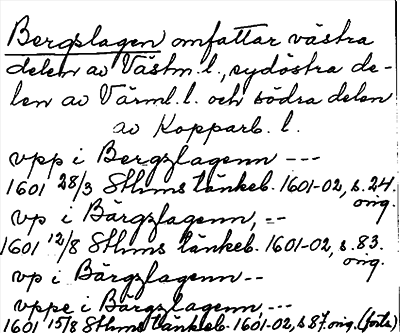 Bergslagen omfattar västra
delen av Västm. l., sydöstra de-
len av Värml. l. och södra delen
av Kopparb. l.
vpp i Bergzlagenn ---
1601 28/3 Sthms tänkeb. 1601-02, s. 24.
orig.
vp i Bärgzlagenn, --
1601 12/8 Sthms tänkeb. 1601-02, s. 83.
orig.
vp i Bärgzlagenn --
vppe i Bärgzlagenn, ---
1601 15/8 Sthms tänkeb. 1601-02, s 87. orig. (forts)